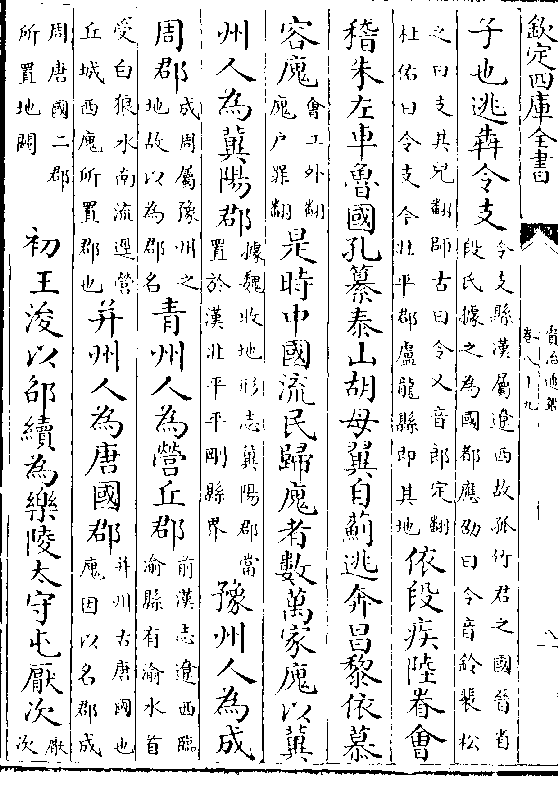 欽定四庫全書
資治通鑑
卷八十九
八
子也逃犇令支
令支縣漢屬遼西故孤竹君之國晉省
段氏據之為國都應劭曰令音鈴裴松
之曰支其兒翻師古曰令又音郎定翻
杜佑曰令支今北平郡盧龍縣即其地
依段疾陸眷會
稽朱左車魯國孔纂泰山胡母翼自薊逃奔昌黎依慕
容廆
會工外翻
廆户罪翻
是時中國流民歸廆者數萬家廆以冀
州人為冀陽郡
據魏收地形志冀陽郡當
置於漢北平平剛縣界
豫州人為成
周郡
成周屬豫州之
地故以為郡名
青州人為營丘郡
前漢志遼西臨
渝縣有渝水首
受白狼水南流逕營
丘城西廆所置郡也
并州人為唐國郡
并州古唐國也
廆因以名郡成
周唐國二郡
所置地闕
初王浚以邵續為樂陵太守屯厭次
厭
次